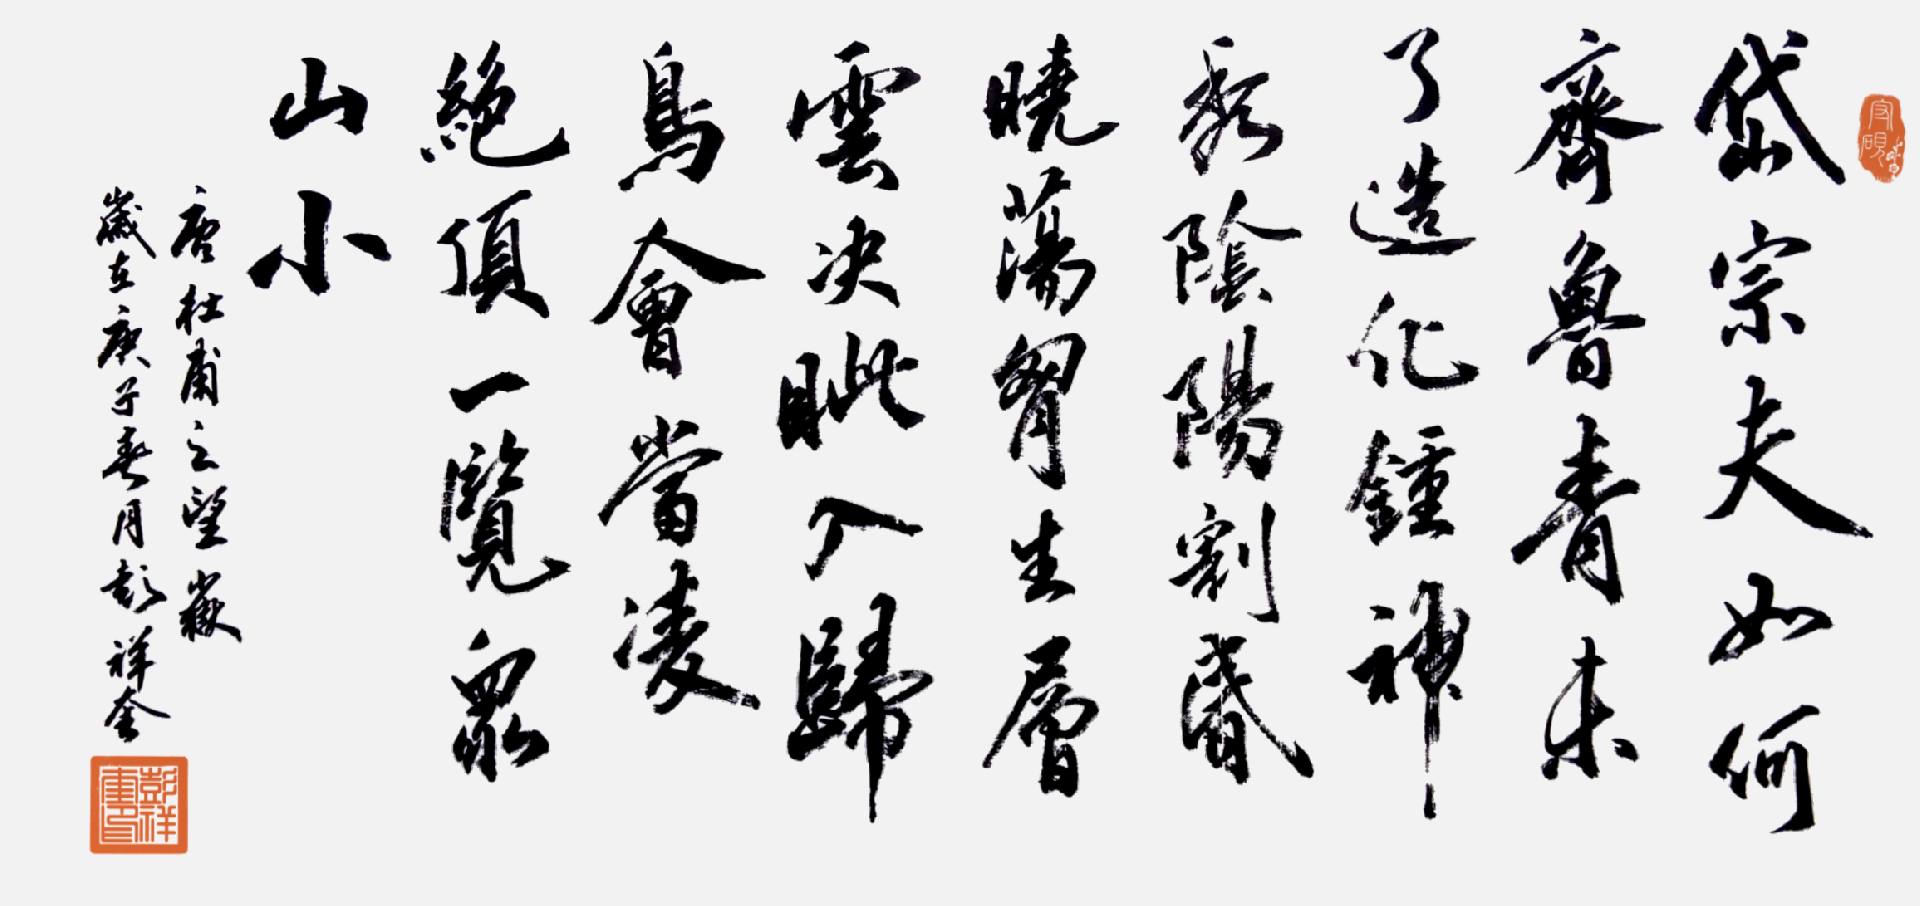 岱宗夫如何
齊魯青未
了造化鍾神
秀陰陽割昏
曉蕩胷生層
雲决眦入歸
鳥會當凌
絕頂一覽眾
山小
唐杜甫之望嶽
歲在庚子春月彭祥奎
彭祥